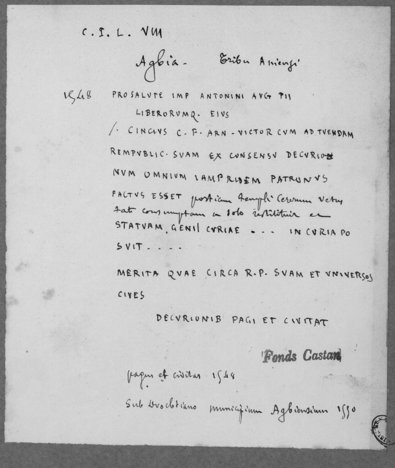 C.I.L. VIII
Agbia - Tribu Arniensi
1548 PRO SALUTE IMP ANTONINI AVG PII
LIBERORUMQ. EIUS
/. CINCIVS C.F. ARN - VICTOR CVM AD TVENDAM
REMPVBLIC. SVAM EX CONSENSV DECURIO
NVM OMNIVM IAMPRIDEM PATRONVS
FACTVS ESSET porticum templi Cererum vetus
tate consumptam a solo restituit et
STATVAM GENII CVRIAE ... IN CVRIA PO
SVIT ....
MERITA QVAE CIRCA R.P. SVAM ET VNIVERSOS
CIVES
DECVRIONIB PAGI ET CIVITAT
Fonds Castan
pagus et civitas 1548
municipium Agbiensium 1550